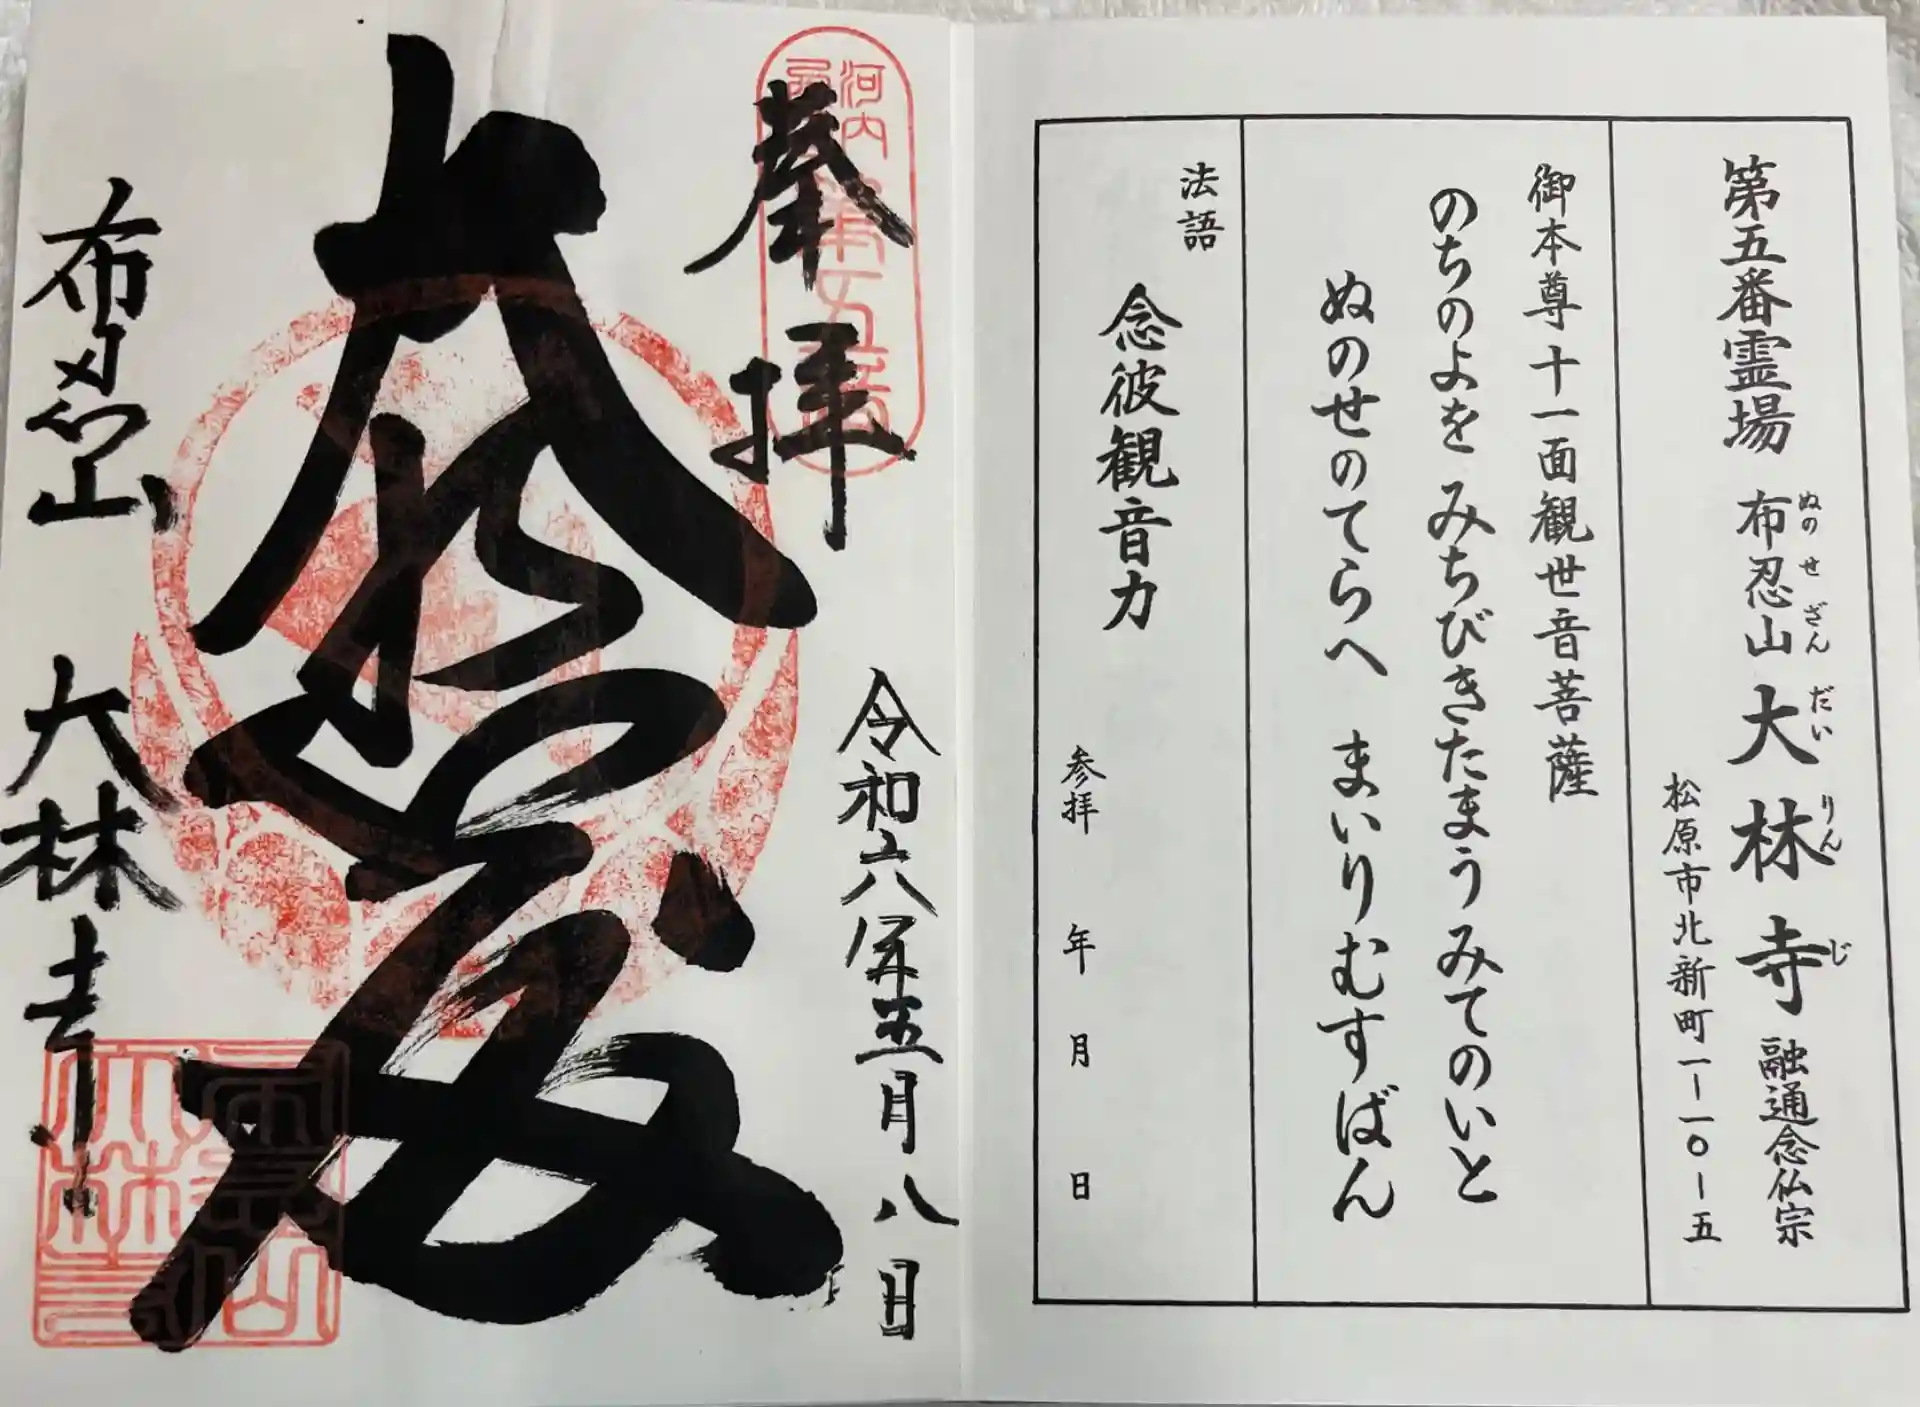 第五番霊場 布忍山 大林寺 融通念仏宗
ぬのせざん だいりんじ
松原市北新町一ー一〇ー五
御本尊 十一面観世音菩薩
のちのよを みちびきたまうみてのいと
ぬのせのてらへ まいりむすばん
法語
念彼観音力
参拝 年 月 日
奉拝
河内
第五番
令和六年五月八日
大悲殿
布忍山 大林寺